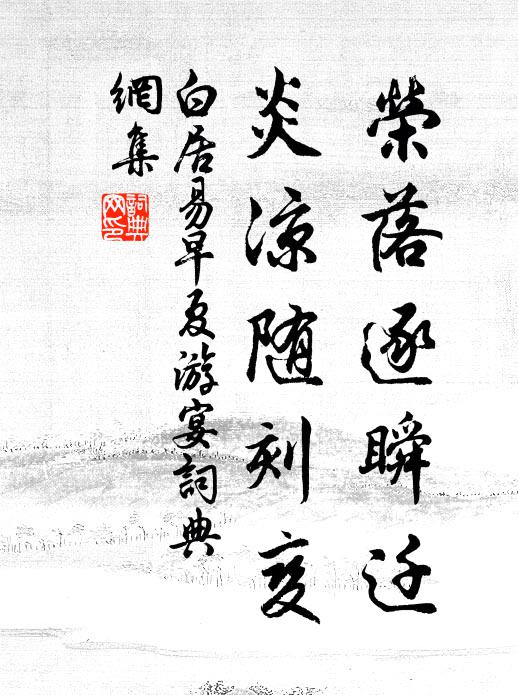 榮落逐瞬迁
炎凉随刻变
白居易早夏游宴詞典
網集
詞典
网印